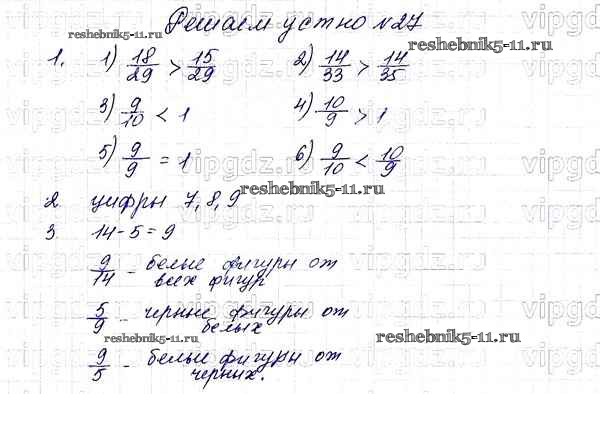 Решаем устно №27
reshebnik5-11.ru
1. 1) 18/29 > 15/29 2) 14/33 > 14/35
reshebnik5-11.ru
3) 9/10 < 1 4) 10/9 > 1
5) 9/9 = 1 6) 9/10 < 10/9
reshebnik5-11.ru
2. цифры 7, 8, 9
3. 14-5=9
9/14 - белые фигуры от
всех фигур
5/9 - черные фигуры от
белых
reshebnik5-11.ru reshebnik5-11.ru
9/5 - белые фигуры от
черных.
vipgdz.ru